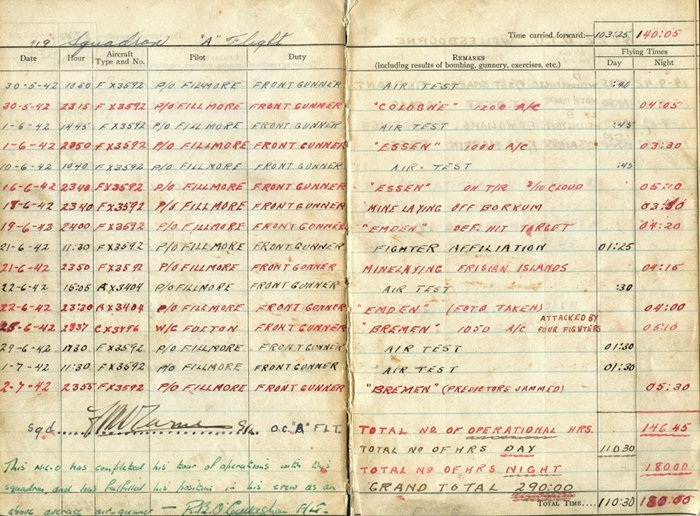 Time carried forward:— 103:25 140:05
419 Squadron "A" Flight
Date Hour Aircraft Type and No. Pilot Duty Remarks (including results of bombing, gunnery, exercises, etc.) Flying Times Day Night
30-5-42 1050 F X3592 P/O FILLMORE FRONT GUNNER AIR TEST :40
30-5-42 2315 F X3592 P/O FILLMORE FRONT GUNNER "COLOGNE" 1200 A/C 04:05
1-6-42 1445 F X3592 P/O FILLMORE FRONT GUNNER AIR TEST :45
1-6-42 2350 F X3592 P/O FILLMORE FRONT GUNNER "ESSEN" 1000 A/C 03:30
10-6-42 1040 F X3592 P/O FILLMORE FRONT GUNNER AIR TEST :45
16-6-42 2340 F X3592 P/O FILLMORE FRONT GUNNER "ESSEN" ON T/R 3/10 CLOUD 05:10
18-6-42 2340 F X3592 P/O FILLMORE FRONT GUNNER MINELAYING OFF BORKUM 03:50
19-6-42 2400 F X3592 P/O FILLMORE FRONT GUNNER "EMDEN" DEF. HIT TARGET 04:20
21-6-42 11:30 F X3592 P/O FILLMORE FRONT GUNNER FIGHTER AFFILIATION 01:25
21-6-42 2350 F X3592 P/O FILLMORE FRONT GUNNER MINELAYING FRISIAN ISLANDS 04:15
22-6-42 15:05 A X3404 P/O FILLMORE FRONT GUNNER AIR TEST :30
22-6-42 23:30 A X3404 P/O FILLMORE FRONT GUNNER "EMDEN" (FOTO TAKEN) 04:00
25-6-42 2337 C X3486 W/C FULTON FRONT GUNNER "BREMEN" 1050 A/C ATTACKED BY FOUR FIGHTERS 05:10
29-6-42 F X3592 P/O FILLMORE FRONT GUNNER AIR TEST 01:30
1-7-42 11:30 F X3592 P/O FILLMORE FRONT GUNNER AIR TEST 01:30
2-7-42 2355 F X3592 P/O FILLMORE FRONT GUNNER "BREMEN" (PREDICTORS JAMMED) 05:30
Sgd. S/L. O.C. "A" FLT.
TOTAL NO OF OPERATIONAL HRS. 146.45
TOTAL NO OF HRS DAY 110.30
TOTAL NO OF HRS NIGHT 180.00
GRAND TOTAL 290:00
This N.C.O has completed his tour of operations with this
squadron and has fulfilled his position in his crew as an
above average air-gunner — F/Lt.
Total Time.... 110:30 180:00